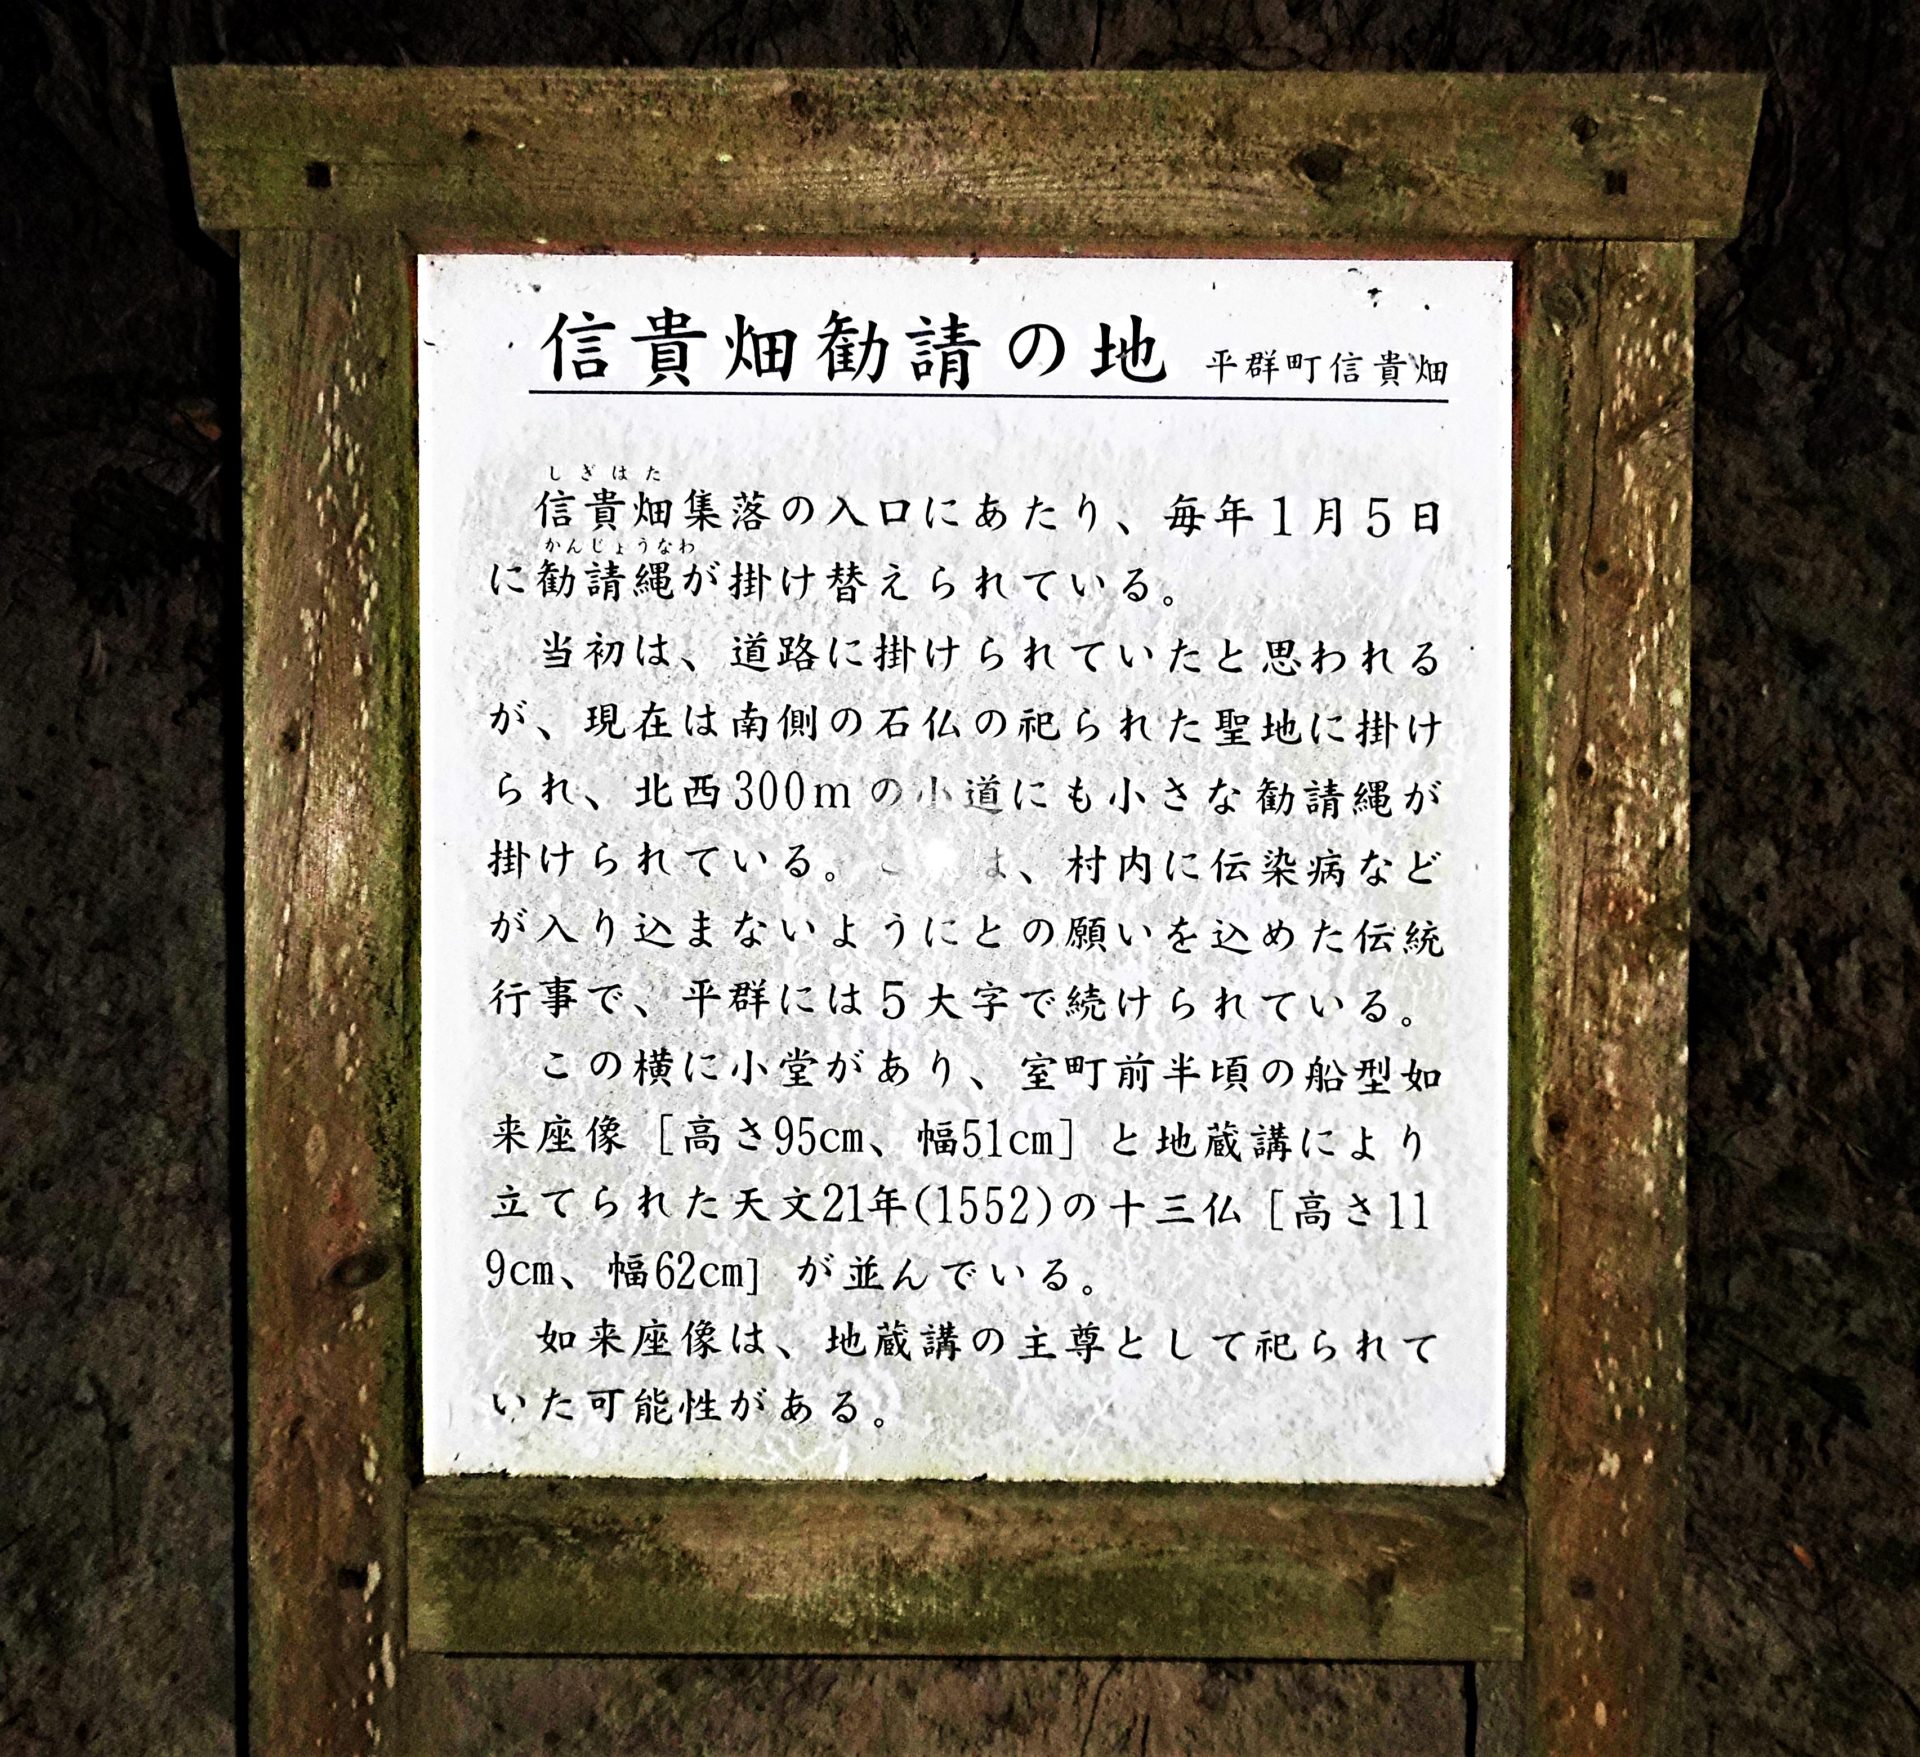 信貴畑勧請の地 平群町信貴畑
しぎはた
信貴畑集落の入口にあたり、毎年1月5日
かんじょうなわ
に勧請縄が掛け替えられている。
当初は、道路に掛けられていたと思われる
が、現在は南側の石仏の祀られた聖地に掛け
られ、北西300mの小道にも小さな勧請縄が
掛けられている。は、村内に伝染病など
が入り込まないようにとの願いを込めた伝統
行事で、平群には5大字で続けられている。
この横に小堂があり、室町前半頃の船型如
来座像［高さ95cm、幅51cm］と地蔵講により
立てられた天文21年(1552)の十三仏［高さ11
9cm、幅62cm］が並んでいる。
如来座像は、地蔵講の主尊として祀られて
いた可能性がある。